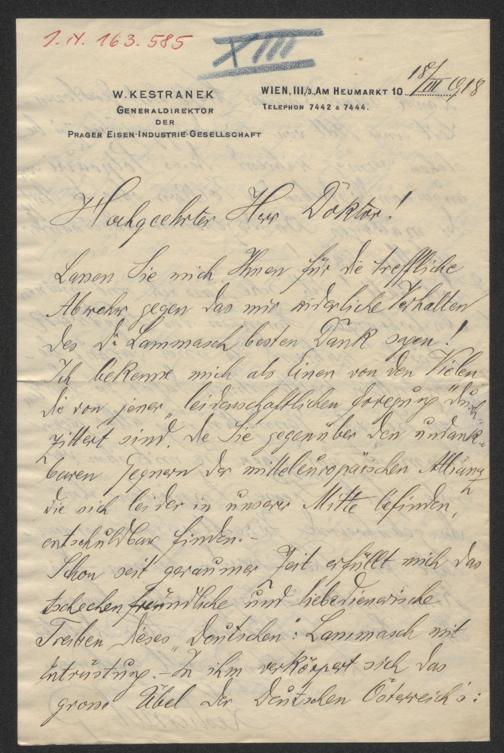 J.N. 163.585
XIII
W. KESTRANEK
GENERALDIREKTOR
DER
PRAGER EISEN-INDUSTRIE-GESELLSCHAFT
WIEN, III/3, AM HEUMARKT 10
18/III 1918
TELEPHON 7442 & 7444.
Hochgeehrter Herr Doktor!
Lassen Sie mich Ihnen für die treffliche
Abwehr gegen das mir widerliche Verhalten
des Dr Lammasch besten Dank sagen!
Ich bekenne mich als Einen von den Vielen
die von jener „leidenschaftlichen Erregung" durch-
zittert sind, die Sie gegenüber den undank-
baren Gegnern der mitteleuropäischen Allianz,
die sich leider in unserer Mitte befinden,
entschuldbar finden.–
Schon seit geraumer Zeit erfüllt mich das
tschechenfreundliche und liebedienerische
Treiben dieses „Deutschen": Lammasch mit
Entrüstung.– In ihm verkörpert sich das
grosse Übel der Deutschen Österreich's: